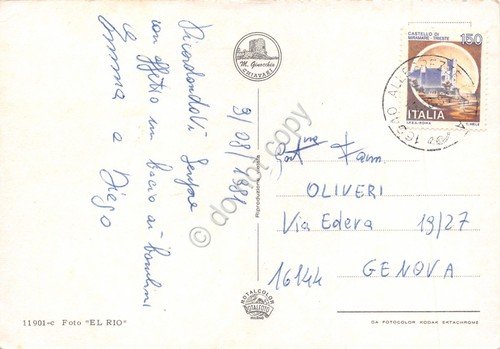 Ricordandovi Sempre
con affetto un bacio ai bambini
e
Emma a Diego
9/08/1981
M. Ginocchio
CHIAVARI
CASTELLO DI
MIRAMARE - TRIESTE
150
ITALIA
Fam.
OLIVERI
Via Edera 19/27
16144 GENOVA
Riproduzione vietata
ROTALCOLOR
ROTALFOTO
MILANO
11901-c Foto "EL RIO"
DA FOTOCOLOR KODAK EKTACHROME
© dor copy